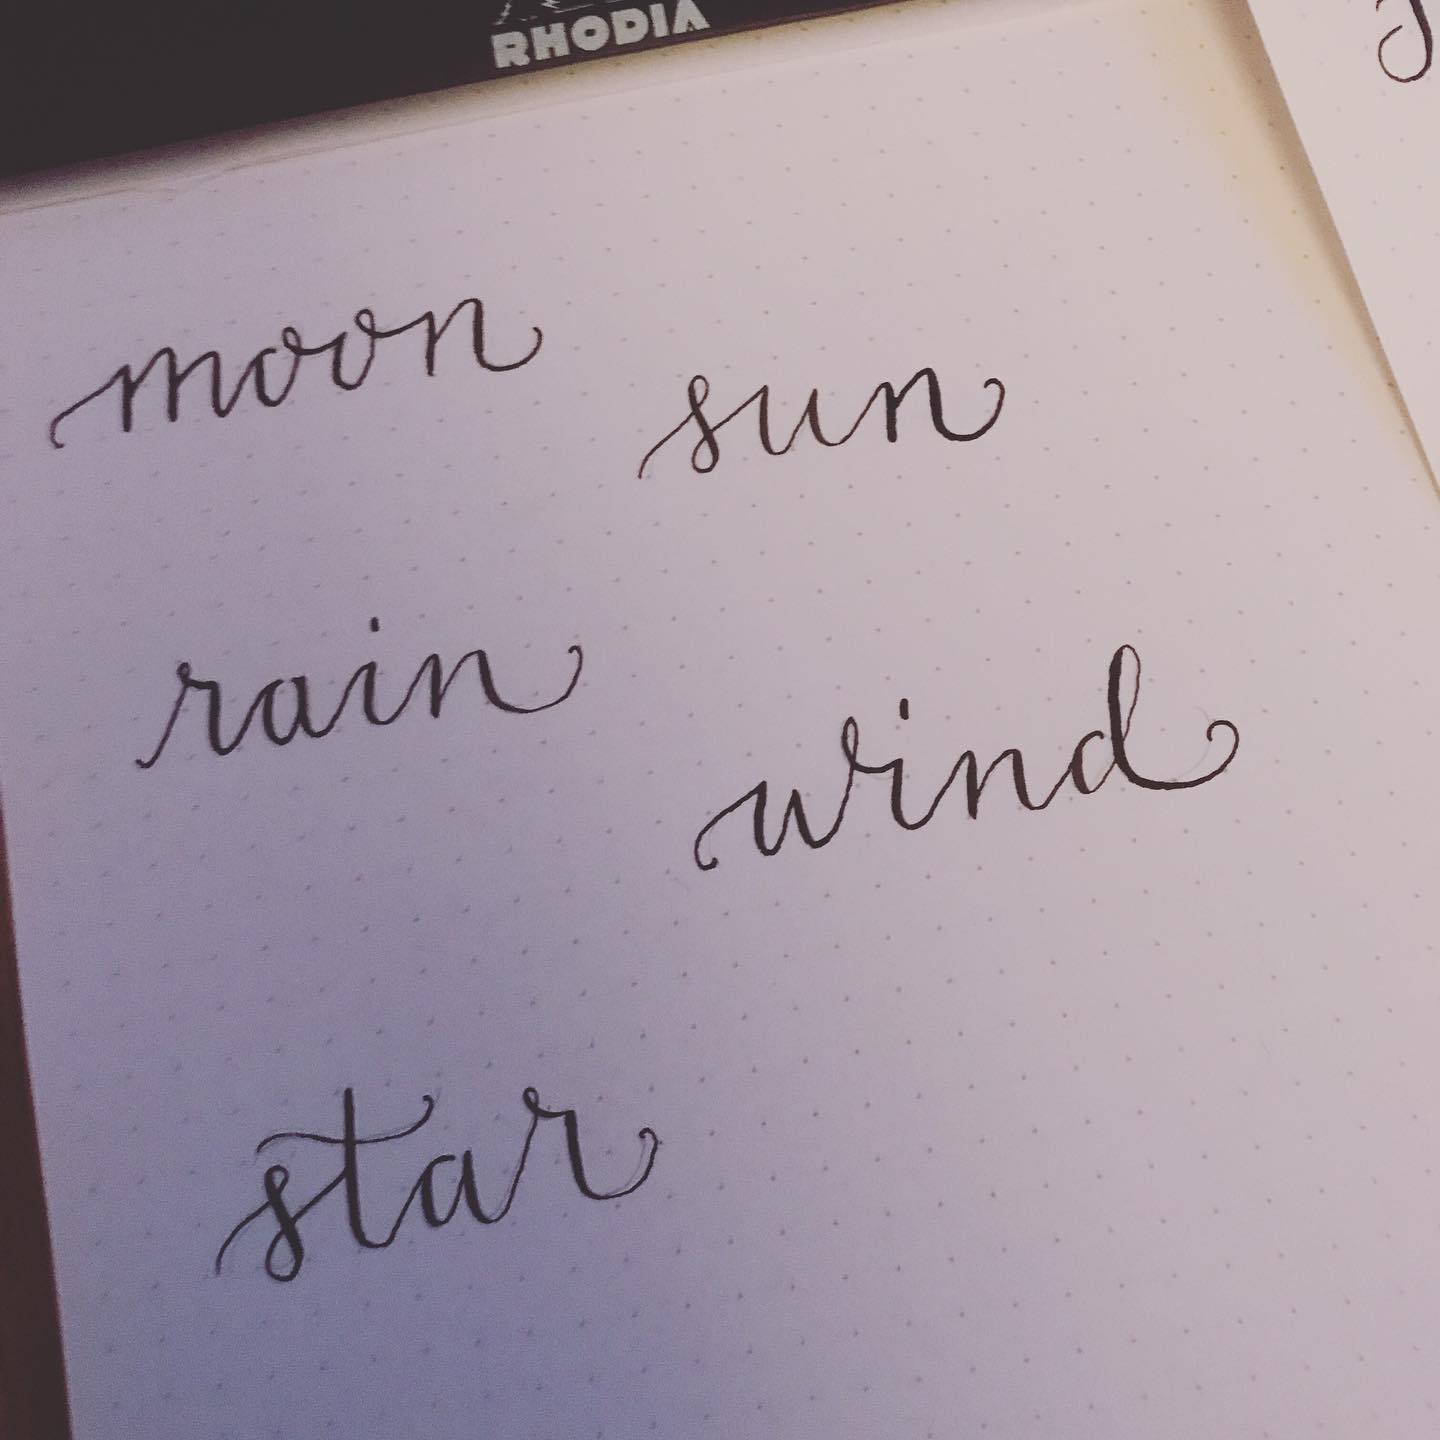 RHODIA
moon
sun
rain
wind
star